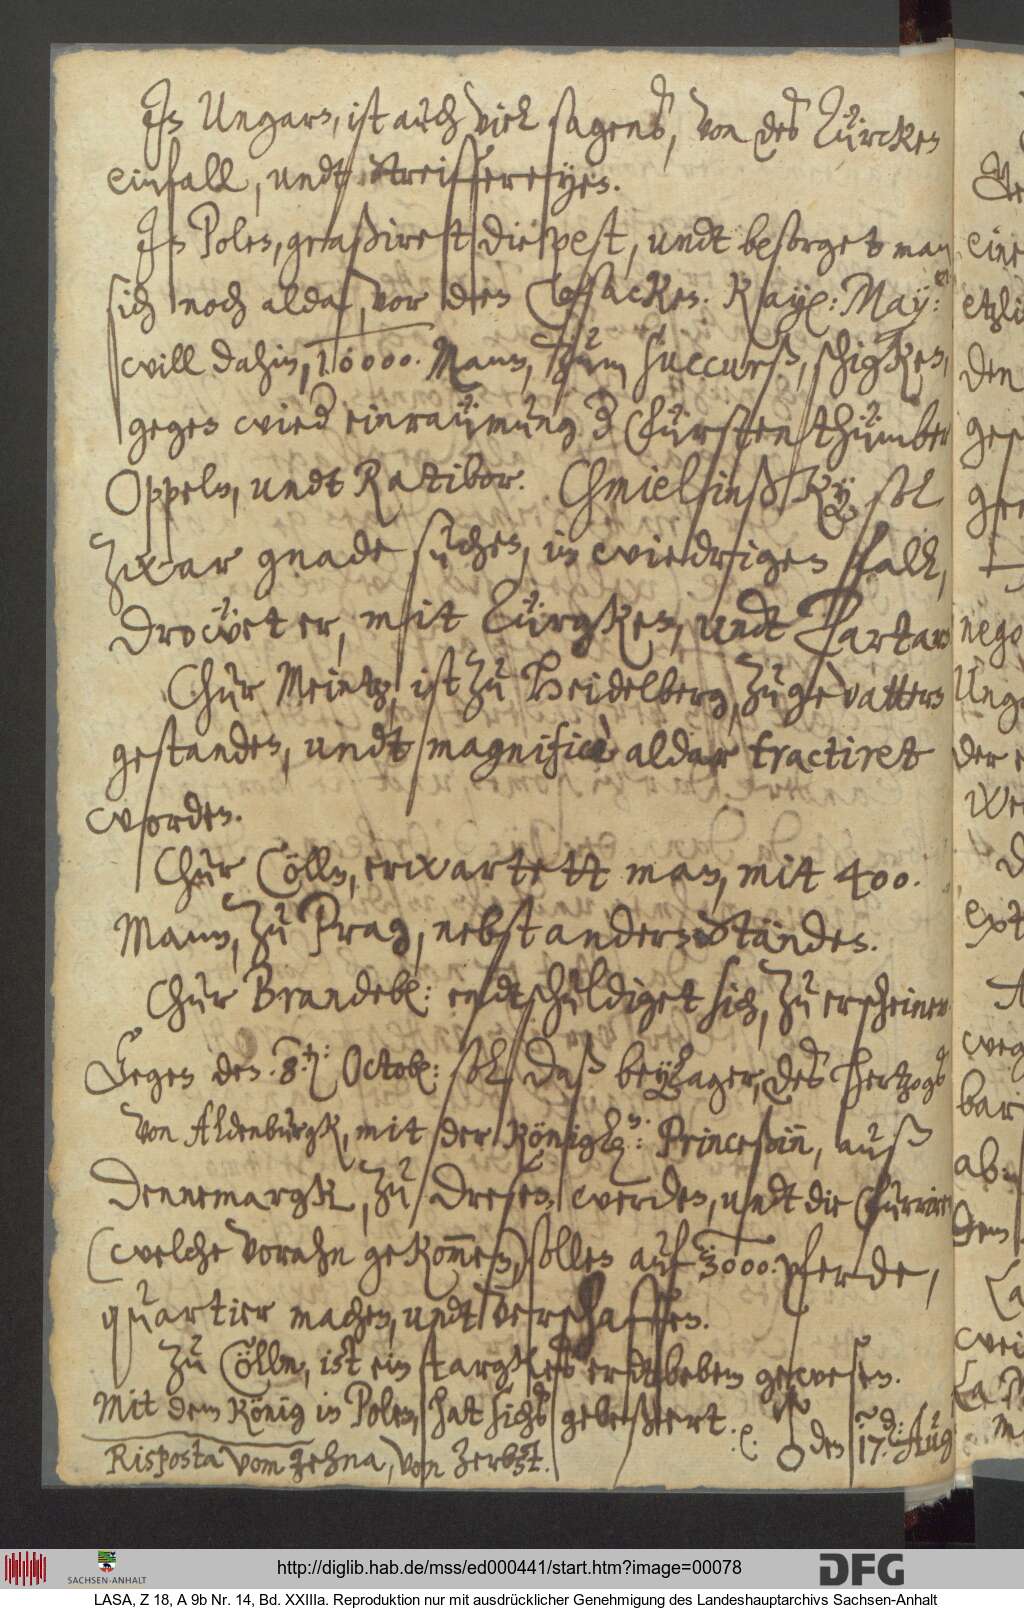 In Ungarn, ist auch viel sagens, von des Türcken
einfall, undt streiffereyen.
In Polen, graßiret die pest, undt besorget man
sich noch aldar, vor den Cosacken. Kay: May:
will dahin, 10000. Mann, zum succurß, schigken,
gegen wied einraümung d Fürstenthümber
Oppeln, undt Ratibor. Chmielinßky sol
zwar gnade suchen, in wiedrigen fall,
drowet er, mit Türgken, undt Tartarn
Chur Meintz, ist zu Heidelberg, zu gevattern
gestanden, undt magnificè aldar tractiret
worden.
Chur Cölln, erwartett man, mit 400.
Mann, zu Prag, nebst andern Ständen.
Chur Brandeb: endtschuldiget sich, zu erscheinen
Gegen den 8.ten: Octob: sol, daß beylager, des Hertzogs
von Aldenburgk, mit der Königl: Princeßinn, auß
Dennemargk, zu Dresen, werden, undt die Furrirer
(welche vorahn gekommen,) sollen auf 3000. pferde,
quartier machen, undt verschaffen.
Zu Cölln, ist ein stargkes erdtbeben gewesen.
Mit dem König in Polen, hat sichs gebeßert. den 17. Aug
Risposta vom Jehna, von Zerbst.
SACHSEN-ANHALT
http://diglib.hab.de/mss/ed000441/start.htm?image=00078
DFG
LASA, Z 18, A 9b Nr. 14, Bd. XXIIIa. Reproduktion nur mit ausdrücklicher Genehmigung des Landeshauptarchivs Sachsen-Anhalt